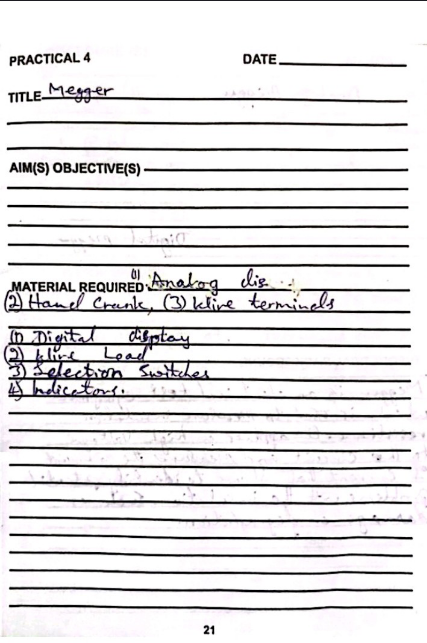 PRACTICAL 4 DATE
TITLE Megger
AIM(S) OBJECTIVE(S)
MATERIAL REQUIRED (1) Analog dis
(2) Hand Crank, (3) Wire terminals
(1) Digital display
(2) Wire Lead
3) Selection Switches
4) Indicators.
21